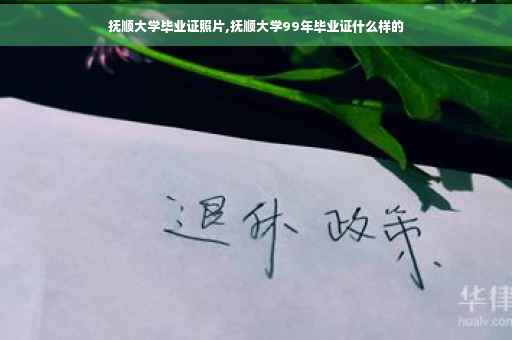 抚顺大学毕业证照片,抚顺大学99年毕业证什么样的
退休 政策
华律
hualv.com